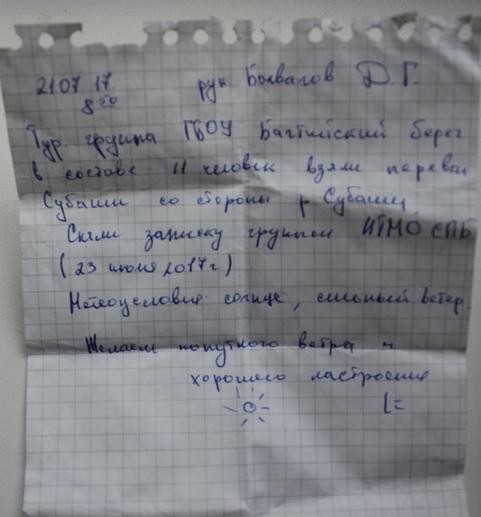 21.07.17. рук. Д. Г.
8⁵⁰
Тур. группа ГБОУ Балтийский берег
в составе 11 человек взяли перевал
Субаши со стороны р. Субаши.
Сняли записку группы ИТМО СПБ
(23 июня 2017г)
Метеоусловия: солнце, сильный ветер.
Желаем попутного ветра и
хорошего настроения